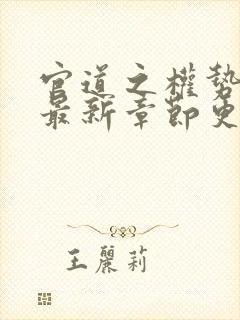 官道之權勢
最新章節更
王麗莉